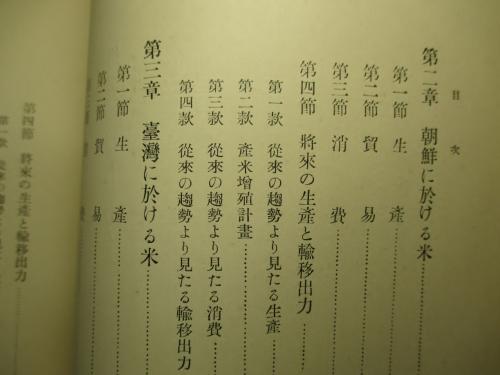 目次
第二章 朝鮮に於ける米
第一節 生産
第二節 貿易
第三節 消費
第四節 將來の生產と輸移出力
第一款 從來の趨勢より見たる生產
第二款 產米增殖計畫
第三款 從來の趨勢より見たる消費
第四款 從來の趨勢より見たる輸移出力
第三章 臺灣に於ける米
第一節 生產
第二節 貿易
第四節 將來の生產と輸移出力
第一款 從來の趨勢